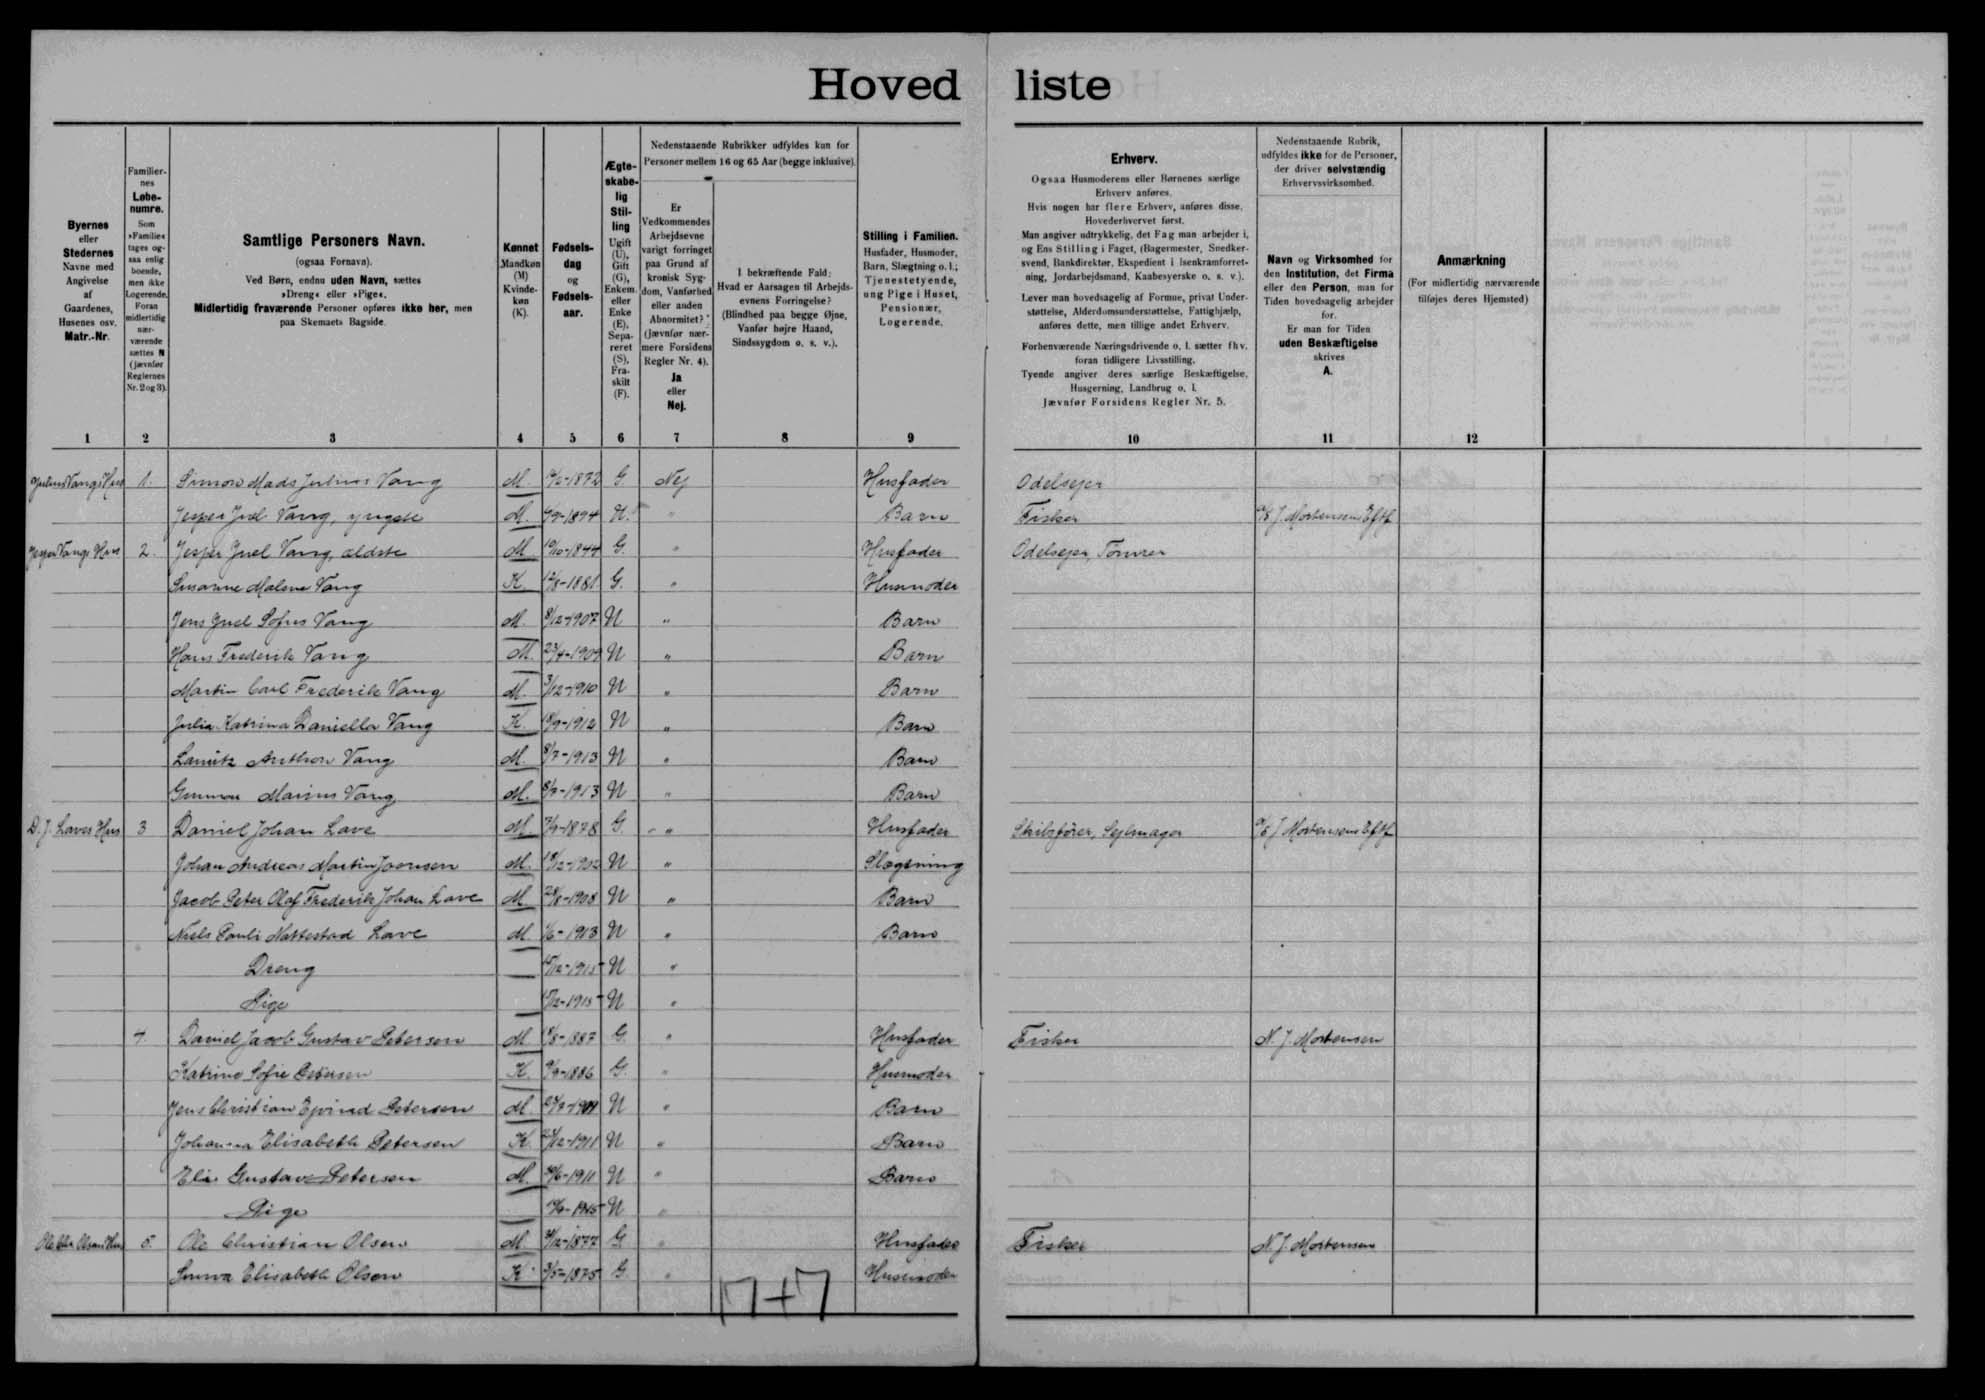 Hoved liste
Byernes
eller
Stedernes
Navne med
Angivelse
af
Gaardenes,
Husenes osv.
Matr.-Nr.
Familier-
nes
Løbe-
numre.
Som
»Familie«
tages og-
saa enlig
boende,
men ikke
Logerende.
Foran
midlertidig
nær-
værende
sættes N
(jævnfør
Reglernes
Nr. 2 og 3).
Samtlige Personers Navn.
(ogsaa Fornavn).
Ved Børn, endnu uden Navn, sættes
»Dreng« eller »Pige«.
Midlertidig fraværende Personer opføres ikke her, men
paa Skemaets Bagside.
Kønnet
Mandkøn
(M)
Kvinde-
køn
(K).
Fødsels-
dag
og
Fødsels-
aar.
Ægte-
skabe-
lig
Stil-
ling
Ugift
(U),
Gift
(G),
Enkem.
eller
Enke
(E),
Sepa-
reret
(S),
Fra-
skilt
(F).
Nedenstaaende Rubrikker udfyldes kun for
Personer mellem 16 og 65 Aar (begge inklusive).
Er
Vedkommendes
Arbejdsevne
varigt forringet
paa Grund af
kronisk Syg-
dom, Vanførhed
eller anden
Abnormitet?
(Jævnfør nær-
mere Forsidens
Regler Nr. 4).
Ja
eller
Nej.
I bekræftende Fald:
Hvad er Aarsagen til Arbejds-
evnens Forringelse?
(Blindhed paa begge Øjne,
Vanfør højre Haand,
Sindssygdom o. s. v.).
Stilling i Familien.
Husfader, Husmoder,
Barn, Slægtning o. l.;
Tjenestetyende,
ung Pige i Huset,
Pensionær,
Logerende.
Erhverv.
Ogsaa Husmoderens eller Børnenes særlige
Erhverv anføres.
Hvis nogen har flere Erhverv, anføres disse,
Hovederhvervet først.
Man angiver udtrykkelig, det Fag man arbejder i,
og Ens Stilling i Faget, (Bagermester, Snedker-
svend, Bankdirektør, Ekspedient i Isenkramforret-
ning, Jordarbejdsmand, Kaabesyerske o. s. v.).
Lever man hovedsagelig af Formue, privat Under-
støttelse, Alderdomsunderstøttelse, Fattighjælp,
anføres dette, men tillige andet Erhverv.
Forhenværende Næringsdrivende o. l. sætter fhv.
foran tidligere Livsstilling.
Tyende angiver deres særlige Beskæftigelse,
Husgerning, Landbrug o. l.
Jævnfør Forsidens Regler Nr. 5.
Nedenstaaende Rubrik,
udfyldes ikke for de Personer,
der driver selvstændig
Erhvervsvirksomhed.
Navn og Virksomhed for
den Institution, det Firma
eller den Person, man for
Tiden hovedsagelig arbejder
for.
Er man for Tiden
uden Beskæftigelse
skrives
A.
Anmærkning
(For midlertidig nærværende
tilføjes deres Hjemsted)
1 2 3 4 5 6 7 8 9 10 11 12
Julius Vangs Hus 1. Simon Mads Julius Vang M. 1872 G. Nej Husfader Odelsejer
Jesper Juel Vang, yngste M. 1894 U. " Barn Fisker J. Mortensens Eftf
Jesper Vangs Hus 2. Jesper Juel Vang, ældste M. 1844 G. " Husfader Odelsejer, Tømrer
Susanne Malene Vang K. 1881 G. " Husmoder
Jens Juel Sofus Vang M. 8/12-1907 U " Barn
Hans Frederik Vang M. 23/4-1909 U " Barn
Martin Carl Frederik Vang M. 3/12-1910 U " Barn
Julia Katrina Daniella Vang K. 18/9-1912 U " Barn
Anthon Vang M. 8/7-1913 U " Barn
Marius Vang M. 1913 U " Barn
D. J. Laves Hus 3 Daniel Johan Lave M. 1878 G. " Husfader Skibsfører, Sejlmager J Mortensens Eftf
Johan Andreas Martin Joensen M. 1902 U " Slægtning
Jacob Peter Olaf Frederik Johan Lave M. 1908 U " Barn
Niels Pauli Nattestad Lave M. 1/6-1913 U " Barn
Dreng 1915 U "
Pige 1915 U "
4. Daniel Jacob Gustav Petersen M. 1887 G. " Husfader Fisker N. J. Mortensen
Katrine Sofie Petersen K. 1886 G. " Husmoder
Jens Christian Ejvind Petersen M. U " Barn
Johanna Elisabeth Petersen K. 1911 U " Barn
Gustav Petersen M. 1911 U " Barn
Pige 1915 U "
Ole Chr. Olsens Hus 5. Ole Christian Olsen M. 1877 G. " Husfader Fisker N. J. Mortensen
Elisabeth Olsen K. 3/5-1875 G. " Husmoder
17+7